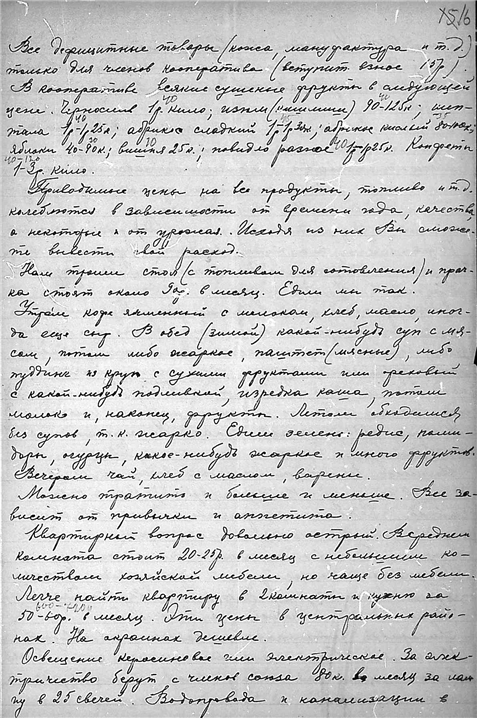 15/6
Все дефицитные товары (кожа, мануфактура и т.д.)
только для членов кооператива (вступит. взнос 15р)
В кооперативе всякие сушеные фрукты в следующей
цене. Чернослив 1р. кило; изюм (кишмиш) 90-125к;
1р-1р25к; абрикос сладкий абрикос кислый
яблоки 40-90к; вишня 25к; повидло разное 1р-1р25к. Конфеты
1-3р. кило.
Приводимые цены на все продукты, топливо и т.д.
колеблются в зависимости от времени года, качества
а некоторые и от урожая. Исходя из них Вы сможе-
те вывести свой расход.
Нам троим стол (с топливом для готовления) и прач-
ка стоят около 90р. в месяц. Едим мы так.
Утром кофе ячменный с молоком, хлеб, масло, иног-
да еще сыр. В обед (зимой) какой-нибудь суп с мя-
сом, потом либо жаркое, паштет (мясные), либо
пуддинг из круп с сухими фруктами или ореховый
с какой-нибудь подливкой, изредка каша, потом
молоко и, наконец, фрукты. Летом обходимся
без супов, т.к. жарко. Едим зелень: редис, поми-
доры, огурцы, какое-нибудь жаркое и много фруктов.
Вечером чай, хлеб с маслом, варенье.
Можно тратить и больше и меньше. Все за-
висит от привычки и аппетита.
Квартирный вопрос довольно острый. В среднем
комната стоит 20-25р. в месяц с небольшим ко-
личеством хозяйской мебели, но чаще без мебели.
Легче найти квартиру в 2 комнаты и кухню за
50-60р. в месяц. Эти цены в центральных райо-
нах. На окраинах дешевле.
Освещение керосиновое или электрическое. За элек-
тричество берут с членов союза 80к. в месяц за лам-
пу в 25 свечей. Водопровода и канализации в